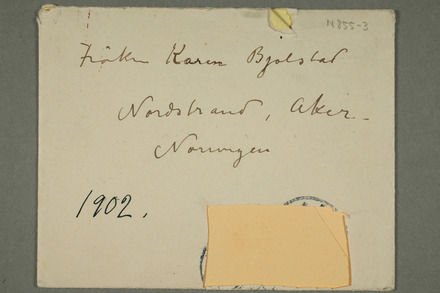 N855-3
Fröken Karin Bjolstad
Nordstrand, Aker.
Norwegen
1902.